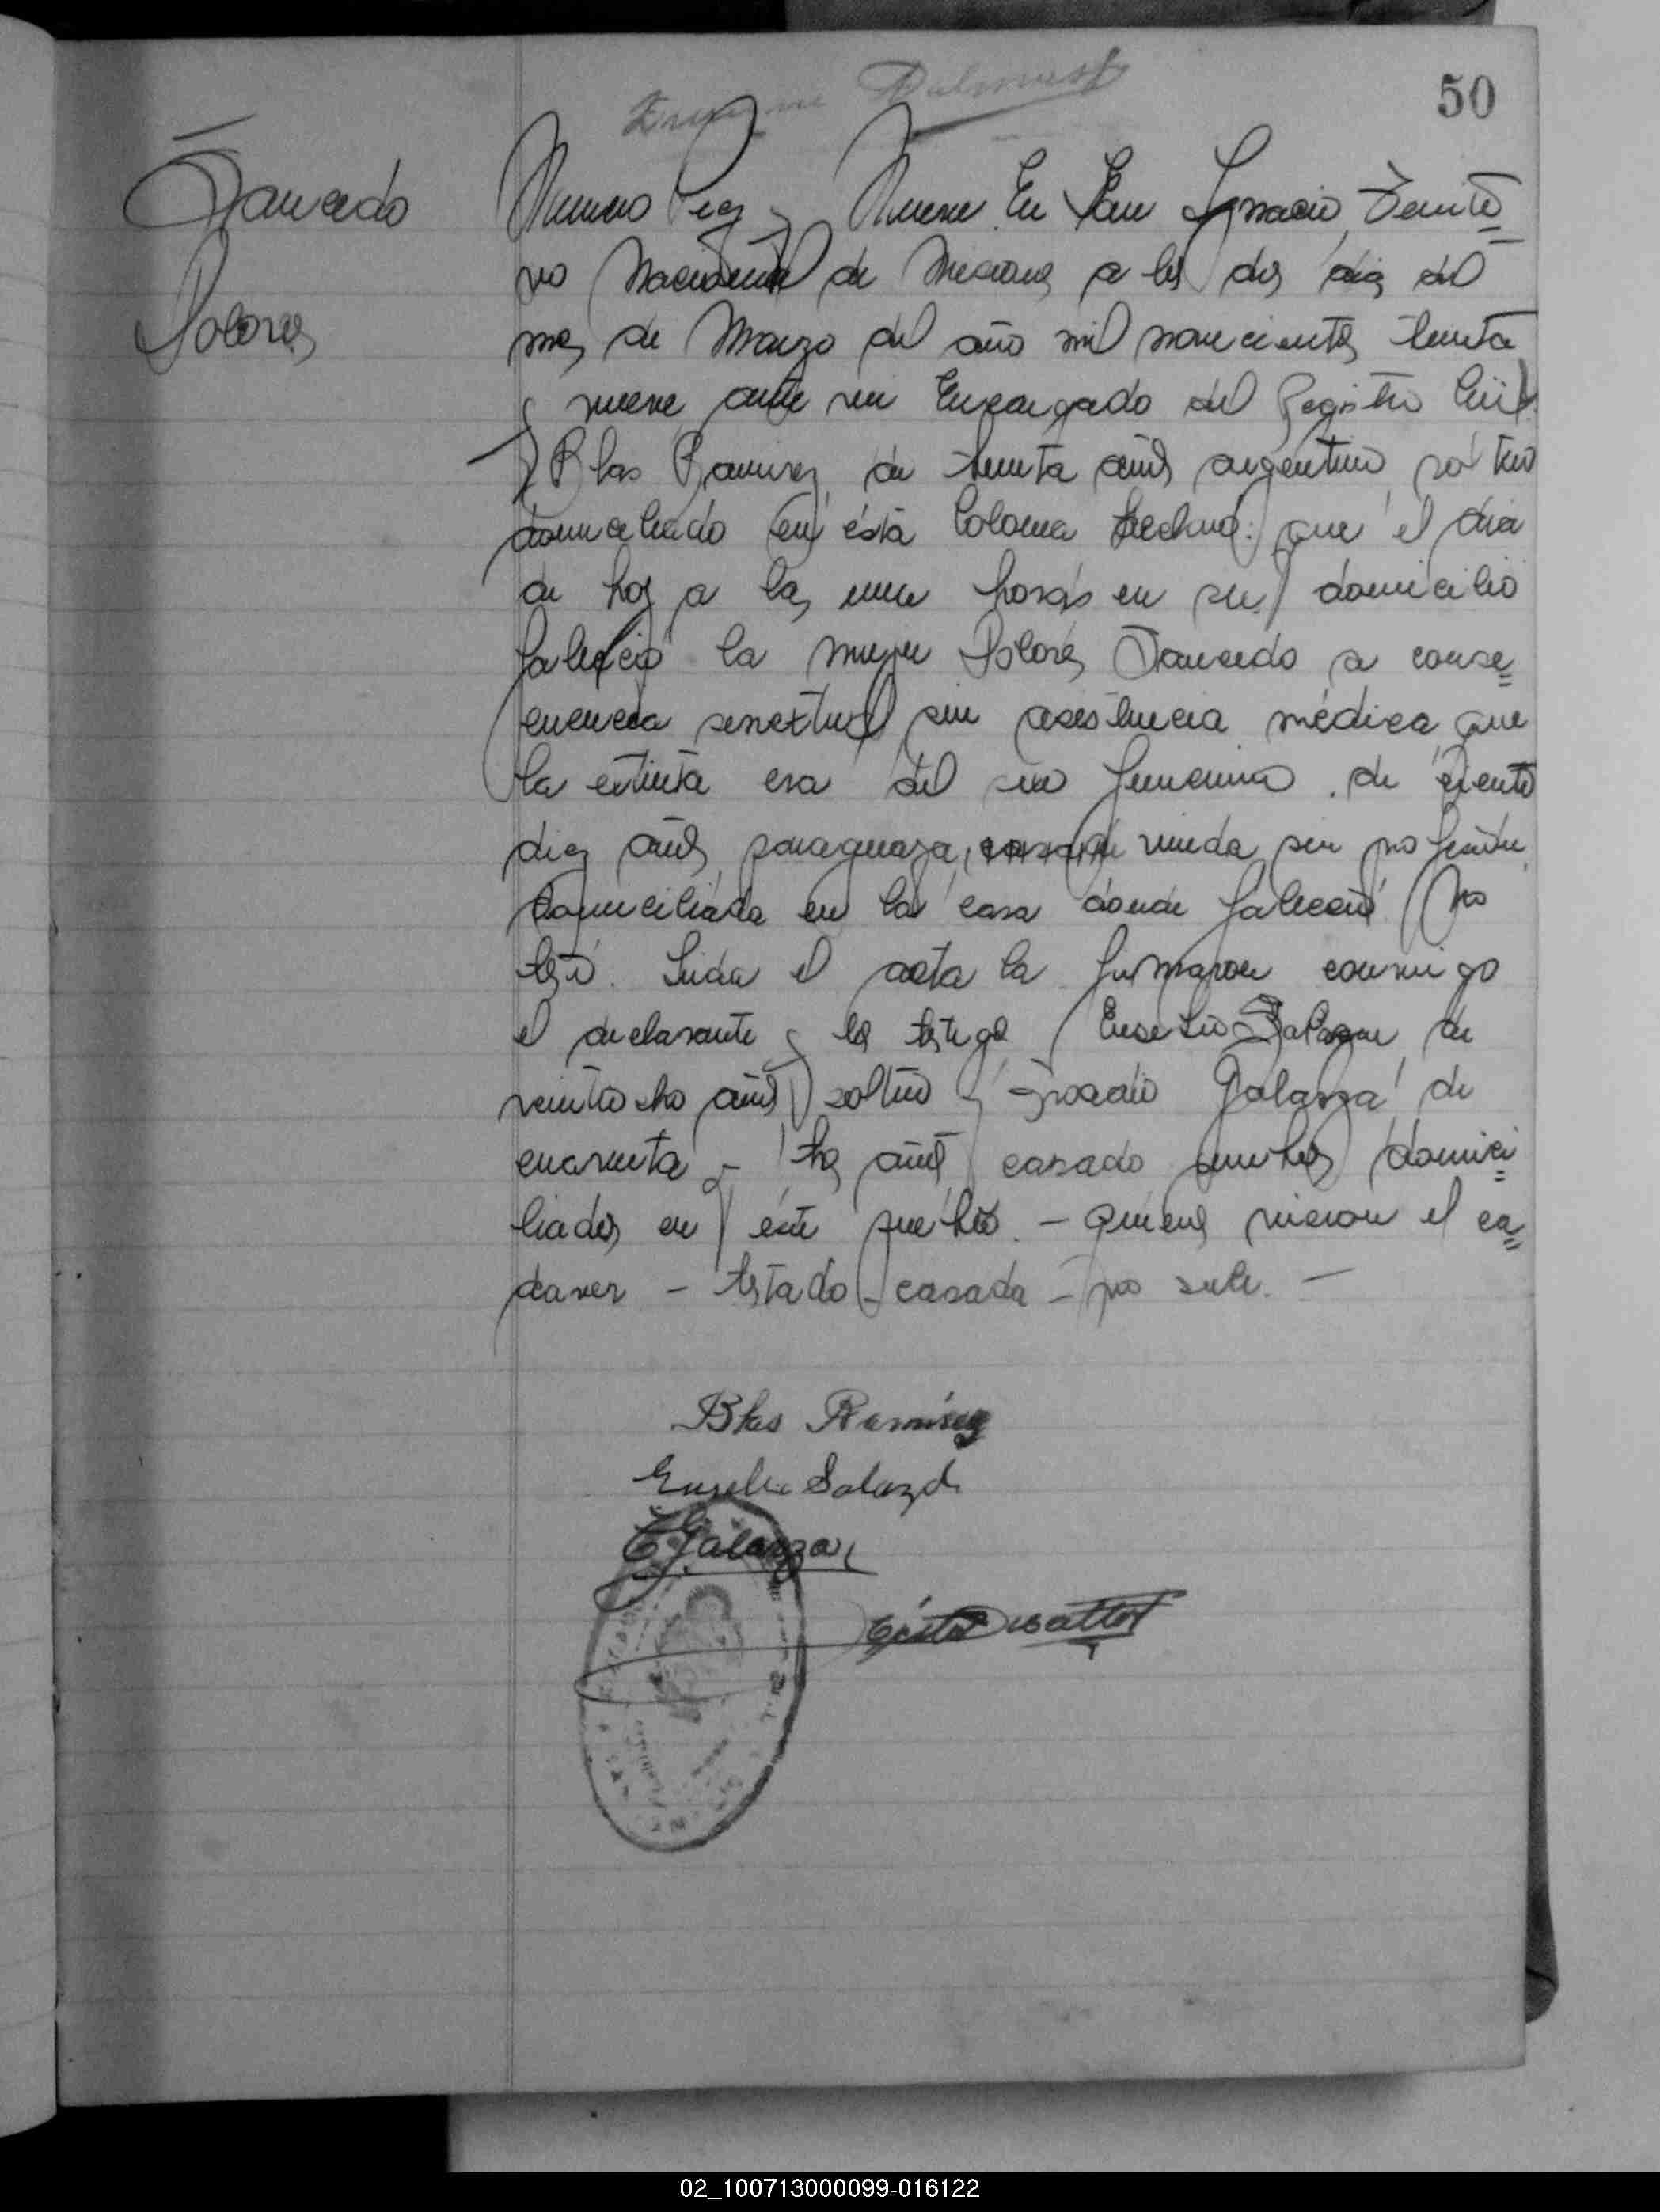 50
Saucedo
Dolores
Numero Diez y Nueve. En San Ignacio, Territo=
rio Nacional de Misiones a los dos dias del
mes de Marzo del año mil novecientos treinta
y nueve ante mi Encargado del Registro Civil
Blas Ramirez, de treinta años argentino soltero
domiciliado en ésta Colonia declaró: que el dia
de hoy a las once horas en su domicilio
fallecio la mujer Dolores Saucedo a conse=
cuencia senectud sin asistencia médica, que
la extinta era del sexo femenino. de ciento
diez años, paraguaya, casada viuda sin profesión
domiciliada en la casa donde fallecio. No
testó. Leida el acta la firmaron conmigo
el declarante y los testigos Eusebio Salazar, de
veintiocho años soltero y Galarza, de
cuarenta y tres años casado ambos domici=
liados en éste pueblo. - quienes vieron el ca=
daver - testado - casada - no vale. -
Blas Ramirez
Eusebio Salazar
Galarza
02_100713000099-016122